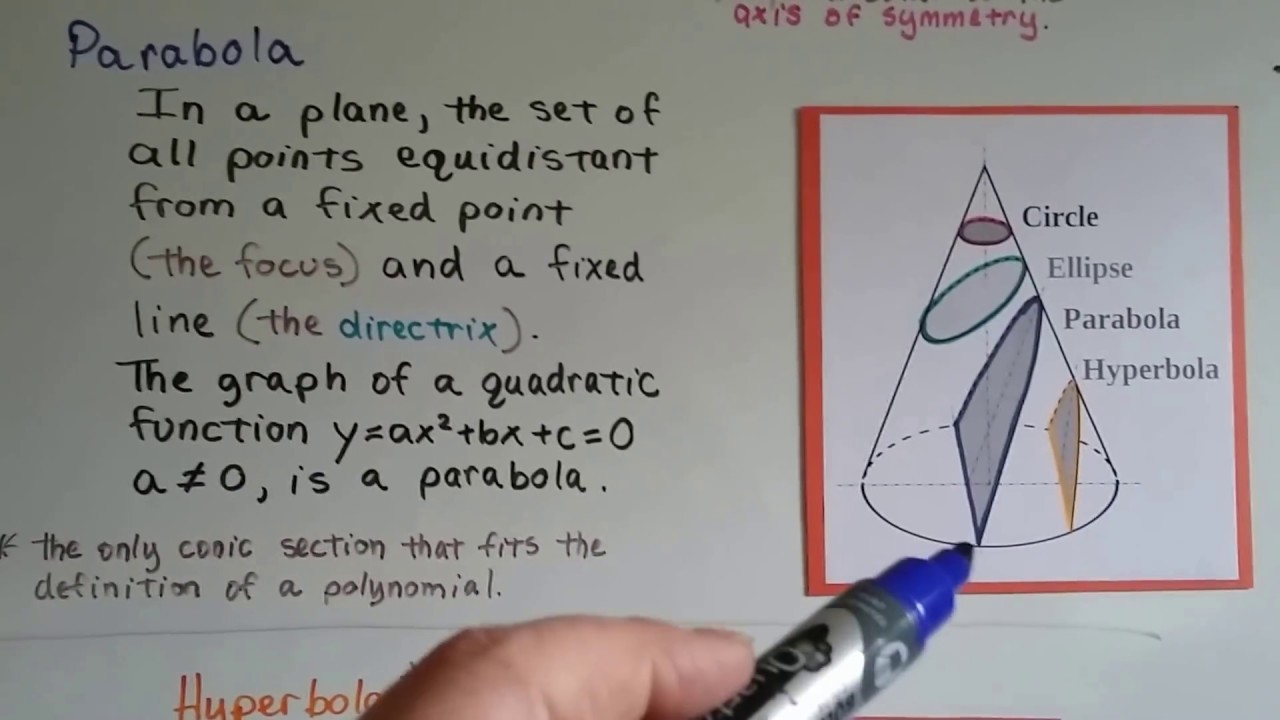 axis of symmetry.
Parabola
In a plane, the set of
all points equidistant
from a fixed point
(the focus) and a fixed
line (the directrix).
The graph of a quadratic
function y=ax²+bx+c=0
a≠0, is a parabola.
* the only conic section that fits the
definition of a polynomial.
Circle
Ellipse
Parabola
Hyperbola